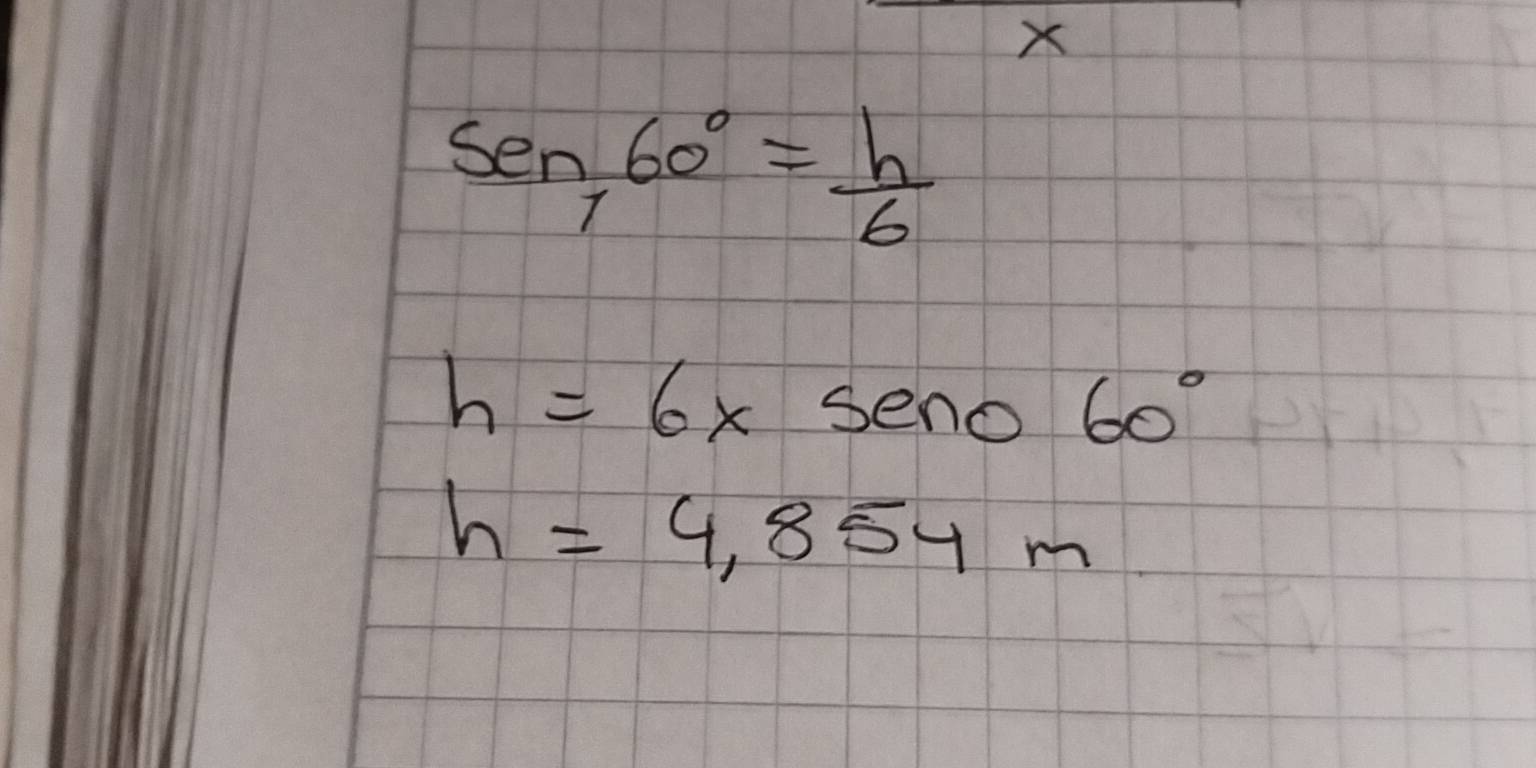 x
sen 60° = h
1 6
h = 6x seno 60°
h = 4,854 m